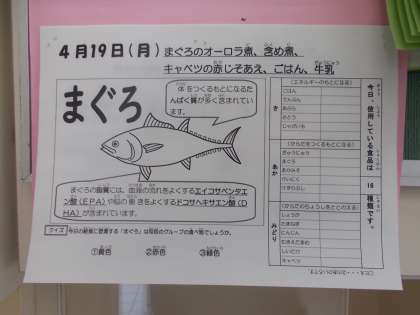 4月19日(月) まぐろのオーロラ煮、含め煮、
キャベツの赤じそあえ、ごはん、牛乳
まぐろ
体をつくるもとになる
たんぱく質が多く含まれてい
ます。
まぐろの脂質には、血液の流れをよくするエイコサペンタエ
ン酸(EPA)や脳の働きをよくするドコサヘキサエン酸(D
HA)が含まれています。
クイズ 今日の給食に登場する「まぐろ」は何色のグループの食べ物でしょうか。
①黄色 ②赤色 ③緑色
今日、使用している食品は
16
種類です。
き
(エネルギーのもとになる)
ごはん
でんぷん
あぶら
さとう
じゃがいも
あか
(からだをつくるもとになる)
ぎゅうにゅう
まぐろ
あかみそ
けいにく
みどり
(からだのちょうしをととのえる)
しょうが
たまねぎ
にんじん
しいたけ
キャベツ